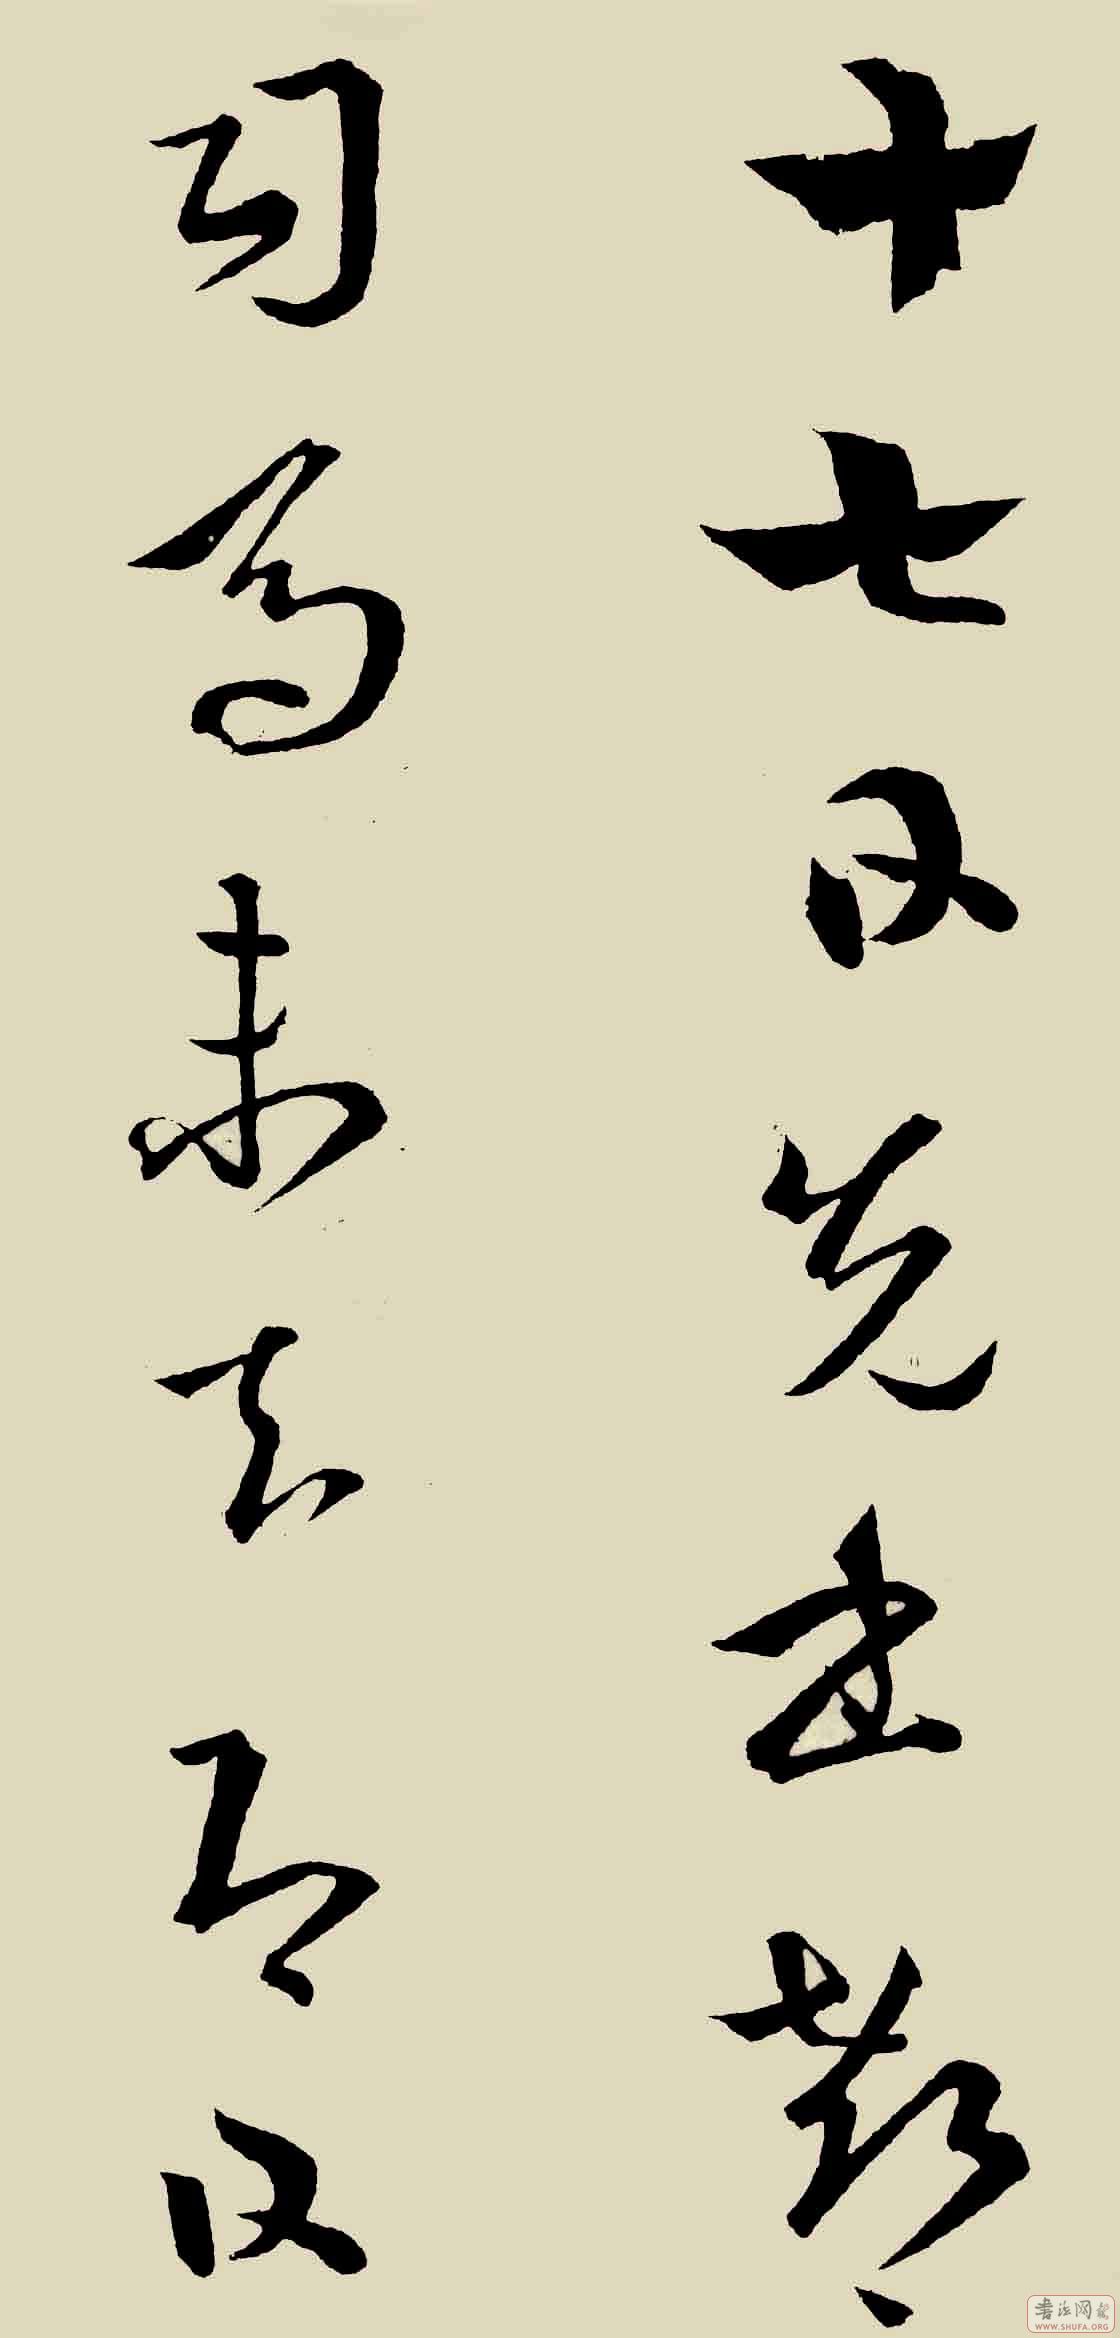 十七日先書郗
司馬未去即日
書法网
WWW.SHUFA.ORG